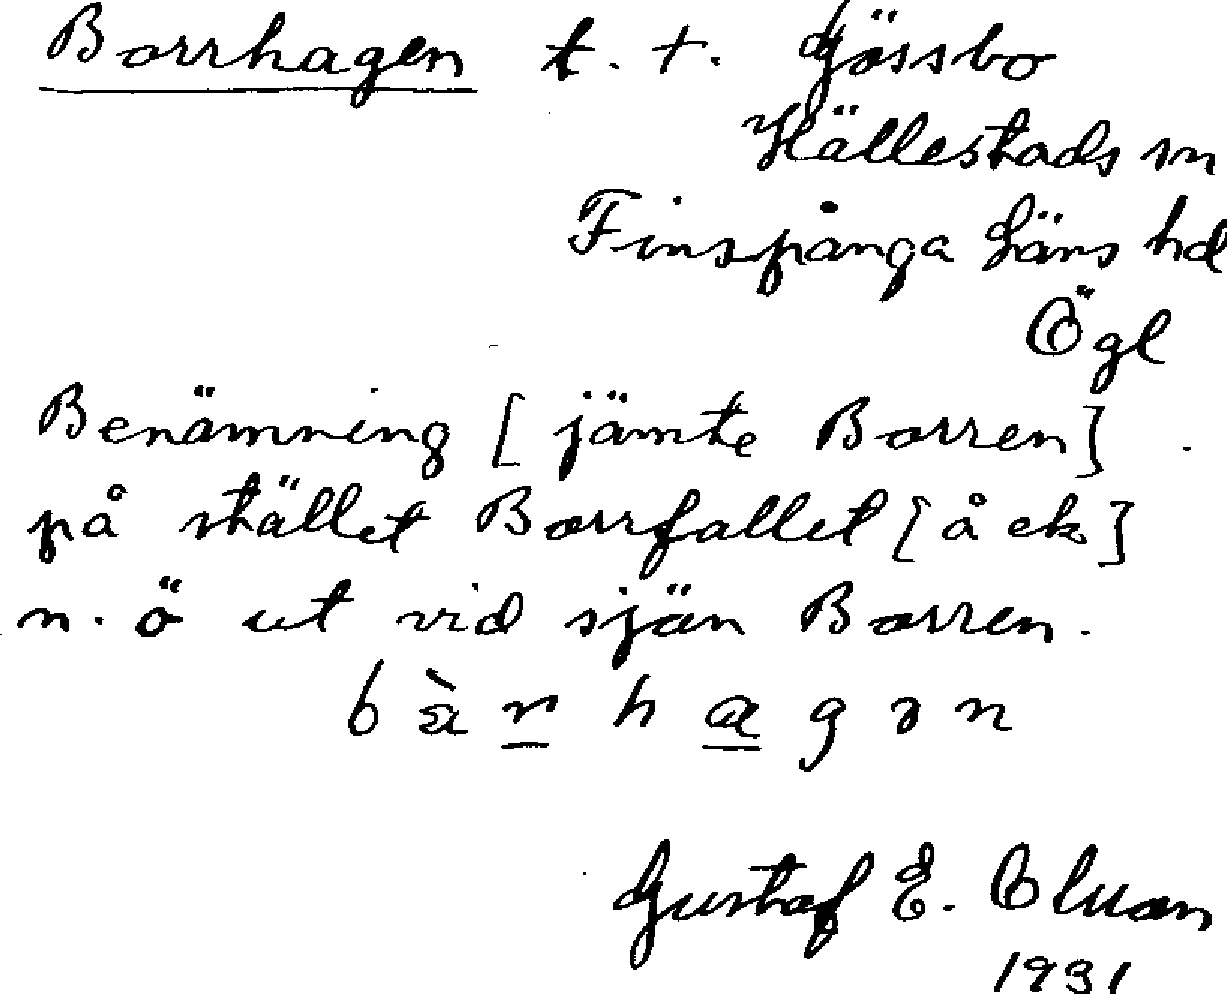 Borrhagen t. t. Gössbo
Hällestads sn
Finspånga Läns hd
Ögl
Benämning [jämte Borren]
på stället Borrfallet [å ek]
n. ö ut vid sjön Borren.
Gustaf E.
1931